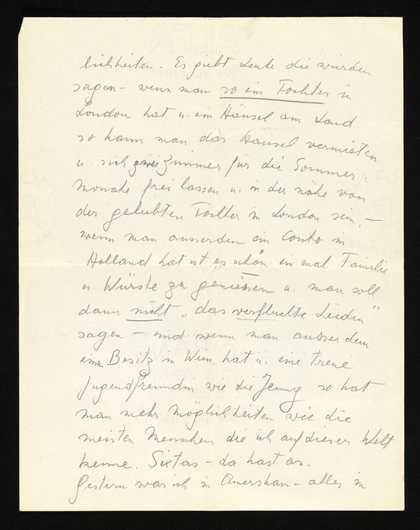 lichkeiten. Es giebt Leute die würden
sagen - wenn man so ein Tochter in
London hat u. ein Häusel am Land
so kann man das Häusel vermieten
u. sich zwei Zimmer für die Sommer-
monate frei lassen u. in der nähe von
der geliebten Tochter in London sein, -
wenn man ausserdem ein Conto in
Holland hat ist es schön en mal Familie
u Würste zu geniessen u. man soll
dann nicht "das verfluchte Leiden"
sagen - und wenn man ausserdem
eine Besitz in Wien hat u. eine treue
Jugendfreundin wie die Jenny so hat
man mehr Möglichkeiten wie die
meisten Menschen die ich auf dieser Welt
kenne. Sixtas - da hast as.
Gestern war ich in - alles in